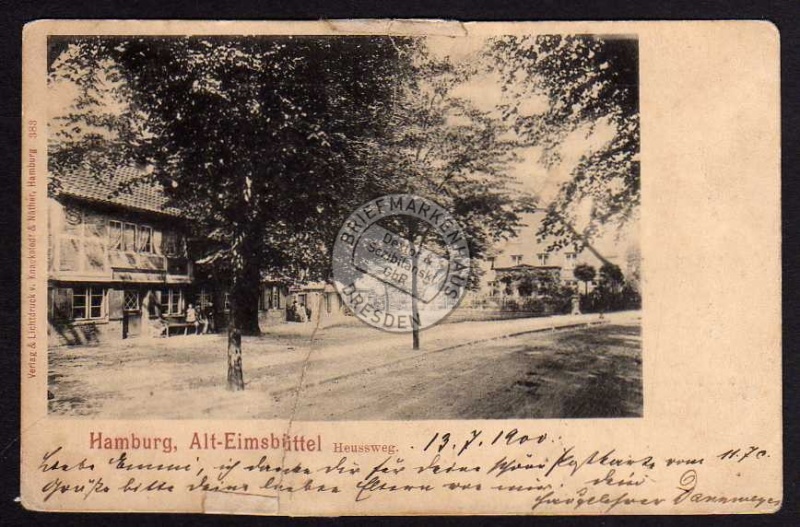 Verlag & Lichtdruck v. Knackstedt & Näther, Hamburg 383
BRIEFMARKENHAUS
DRESDEN
GbR
Hamburg, Alt-Eimsbüttel Heussweg. 13.7.1900.
Liebe Emmi, ich danke dir für deine schöne Postkarte vom 11.7c.
Grüße bitte deine lieben Eltern von mir, dein